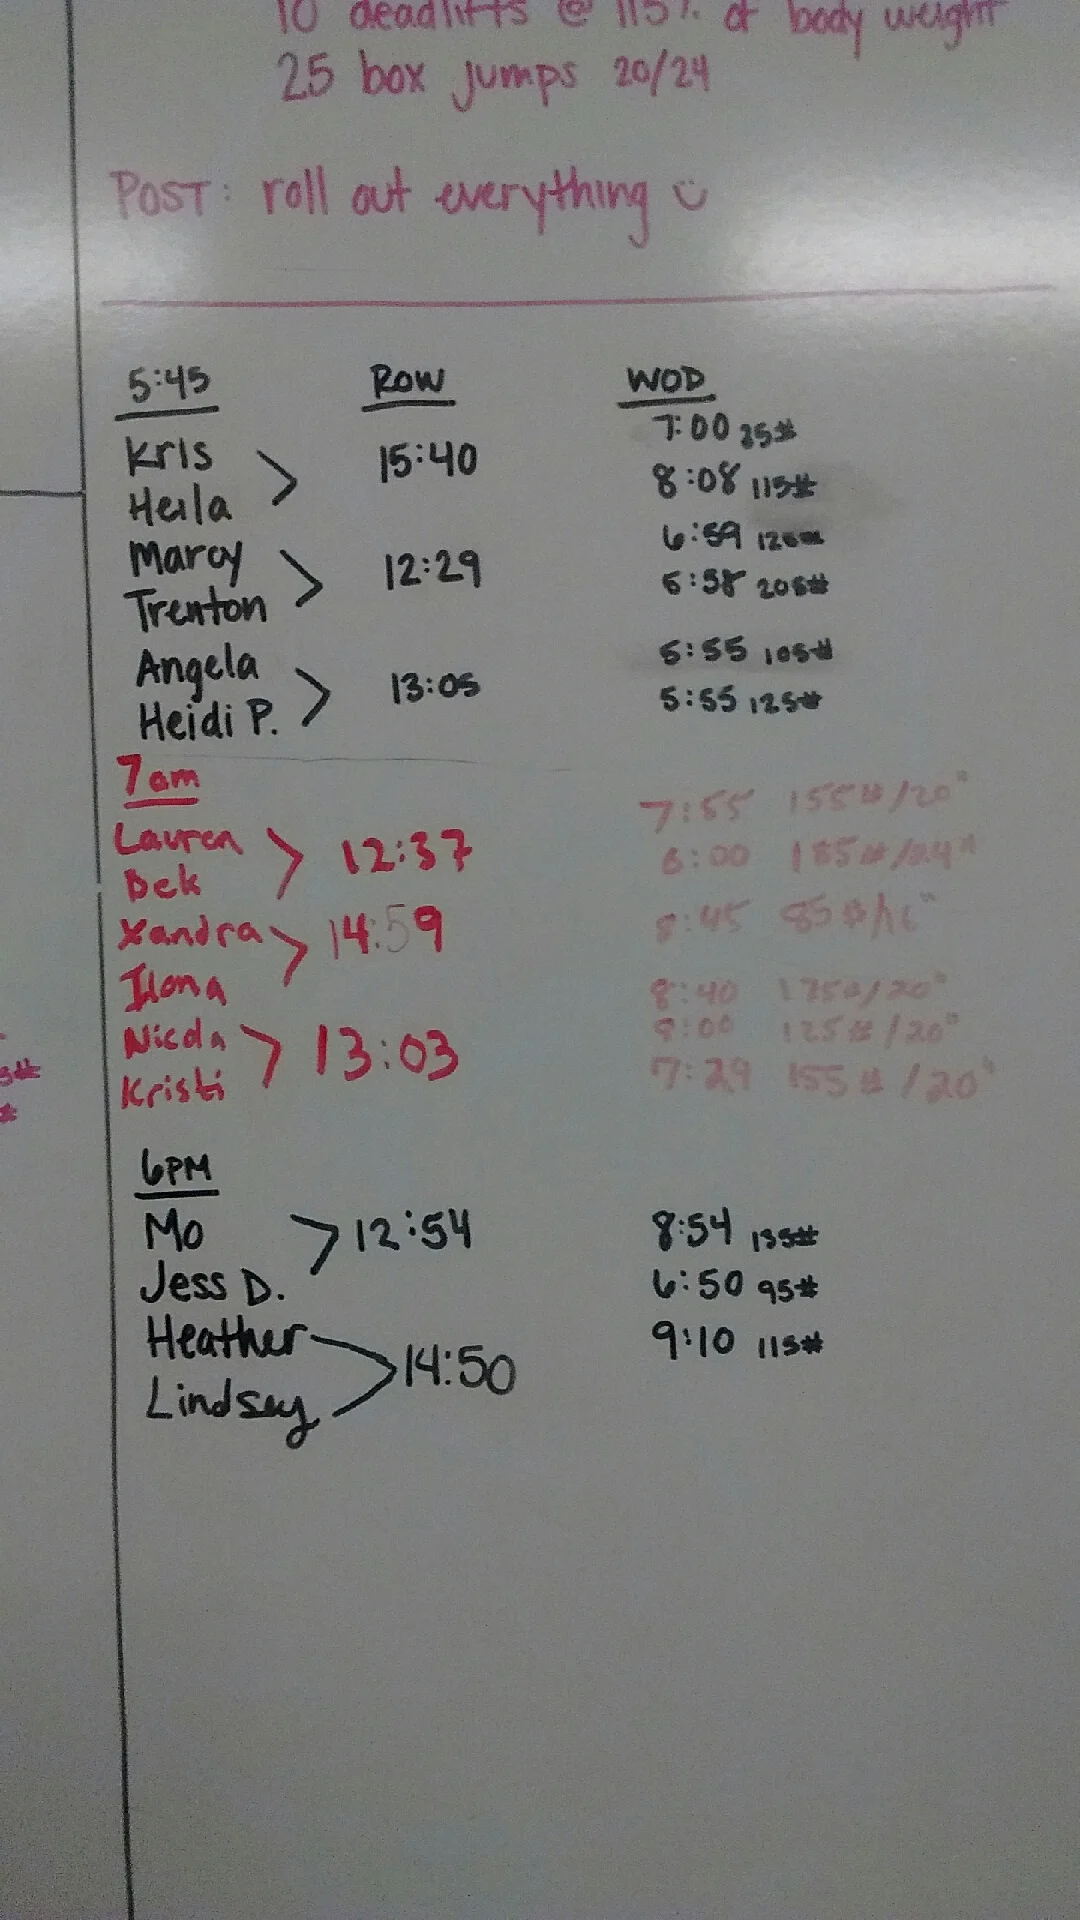 10 deadlifts @ 115% of body weight
25 box jumps 20/24
POST: roll out everything
5:45 ROW WOD
Kris 15:40 7:00 35#
Heila 8:08 115#
Marcy 12:29 6:59 125#
Trenton 5:58 205#
Angela 13:05 5:55 105#
Heidi P. 5:55 125#
7am
Lauren 12:37 7:55 155#/20"
Bek 6:00 185#/24"
Xandra 14:59 8:45 85#/16"
Ilona 8:40 175#/20"
Nicola 13:03 8:00 125#/20"
Kristi 7:29 155#/20"
6PM
Mo 12:54 8:54 135#
Jess D. 6:50 95#
Heather 14:50 9:10 115#
Lindsay